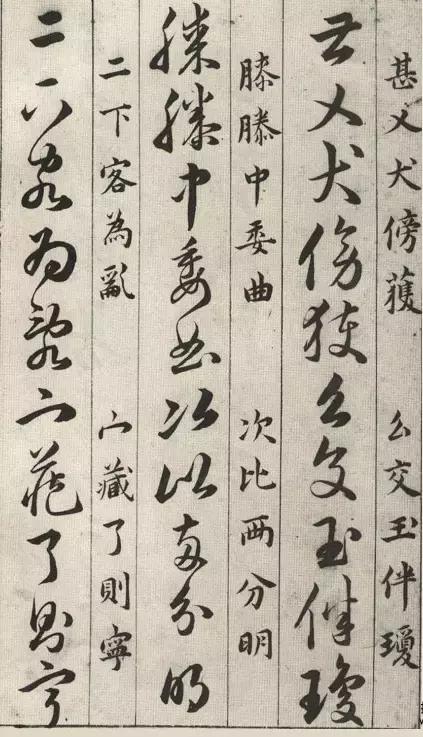 甚乂犬傍獲 么交玉伴瓊
甚乂犬傍獲么交玉伴瓊
膝滕中委曲 次比两分明
膝滕中委曲次比两分明
二下客為亂 宀藏了則寧
二下客為亂宀藏了則寧